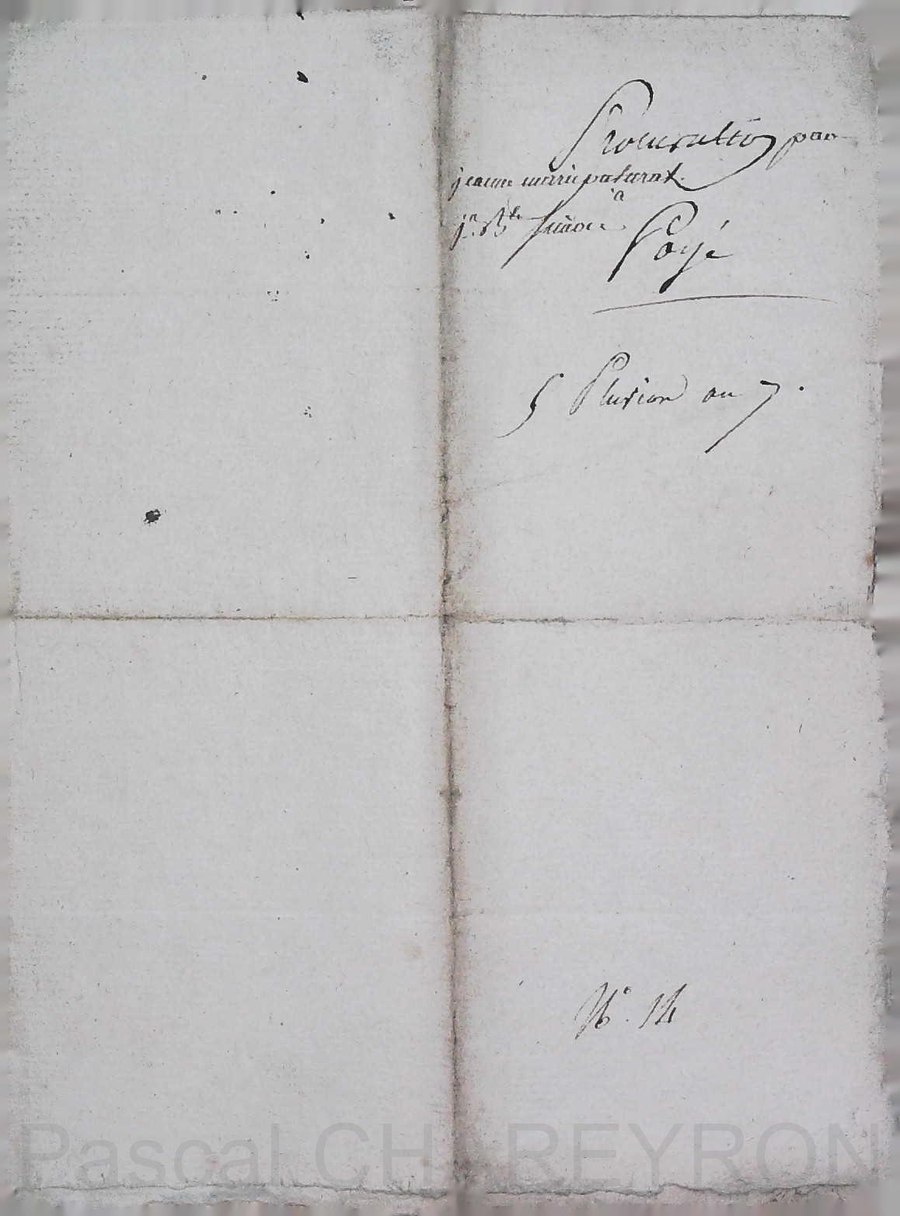 Procuration par
jeanne marie paturat
à
jn Bte
Payé
5 Pluviose an 7.
N° 14
Pascal CHAREYRON